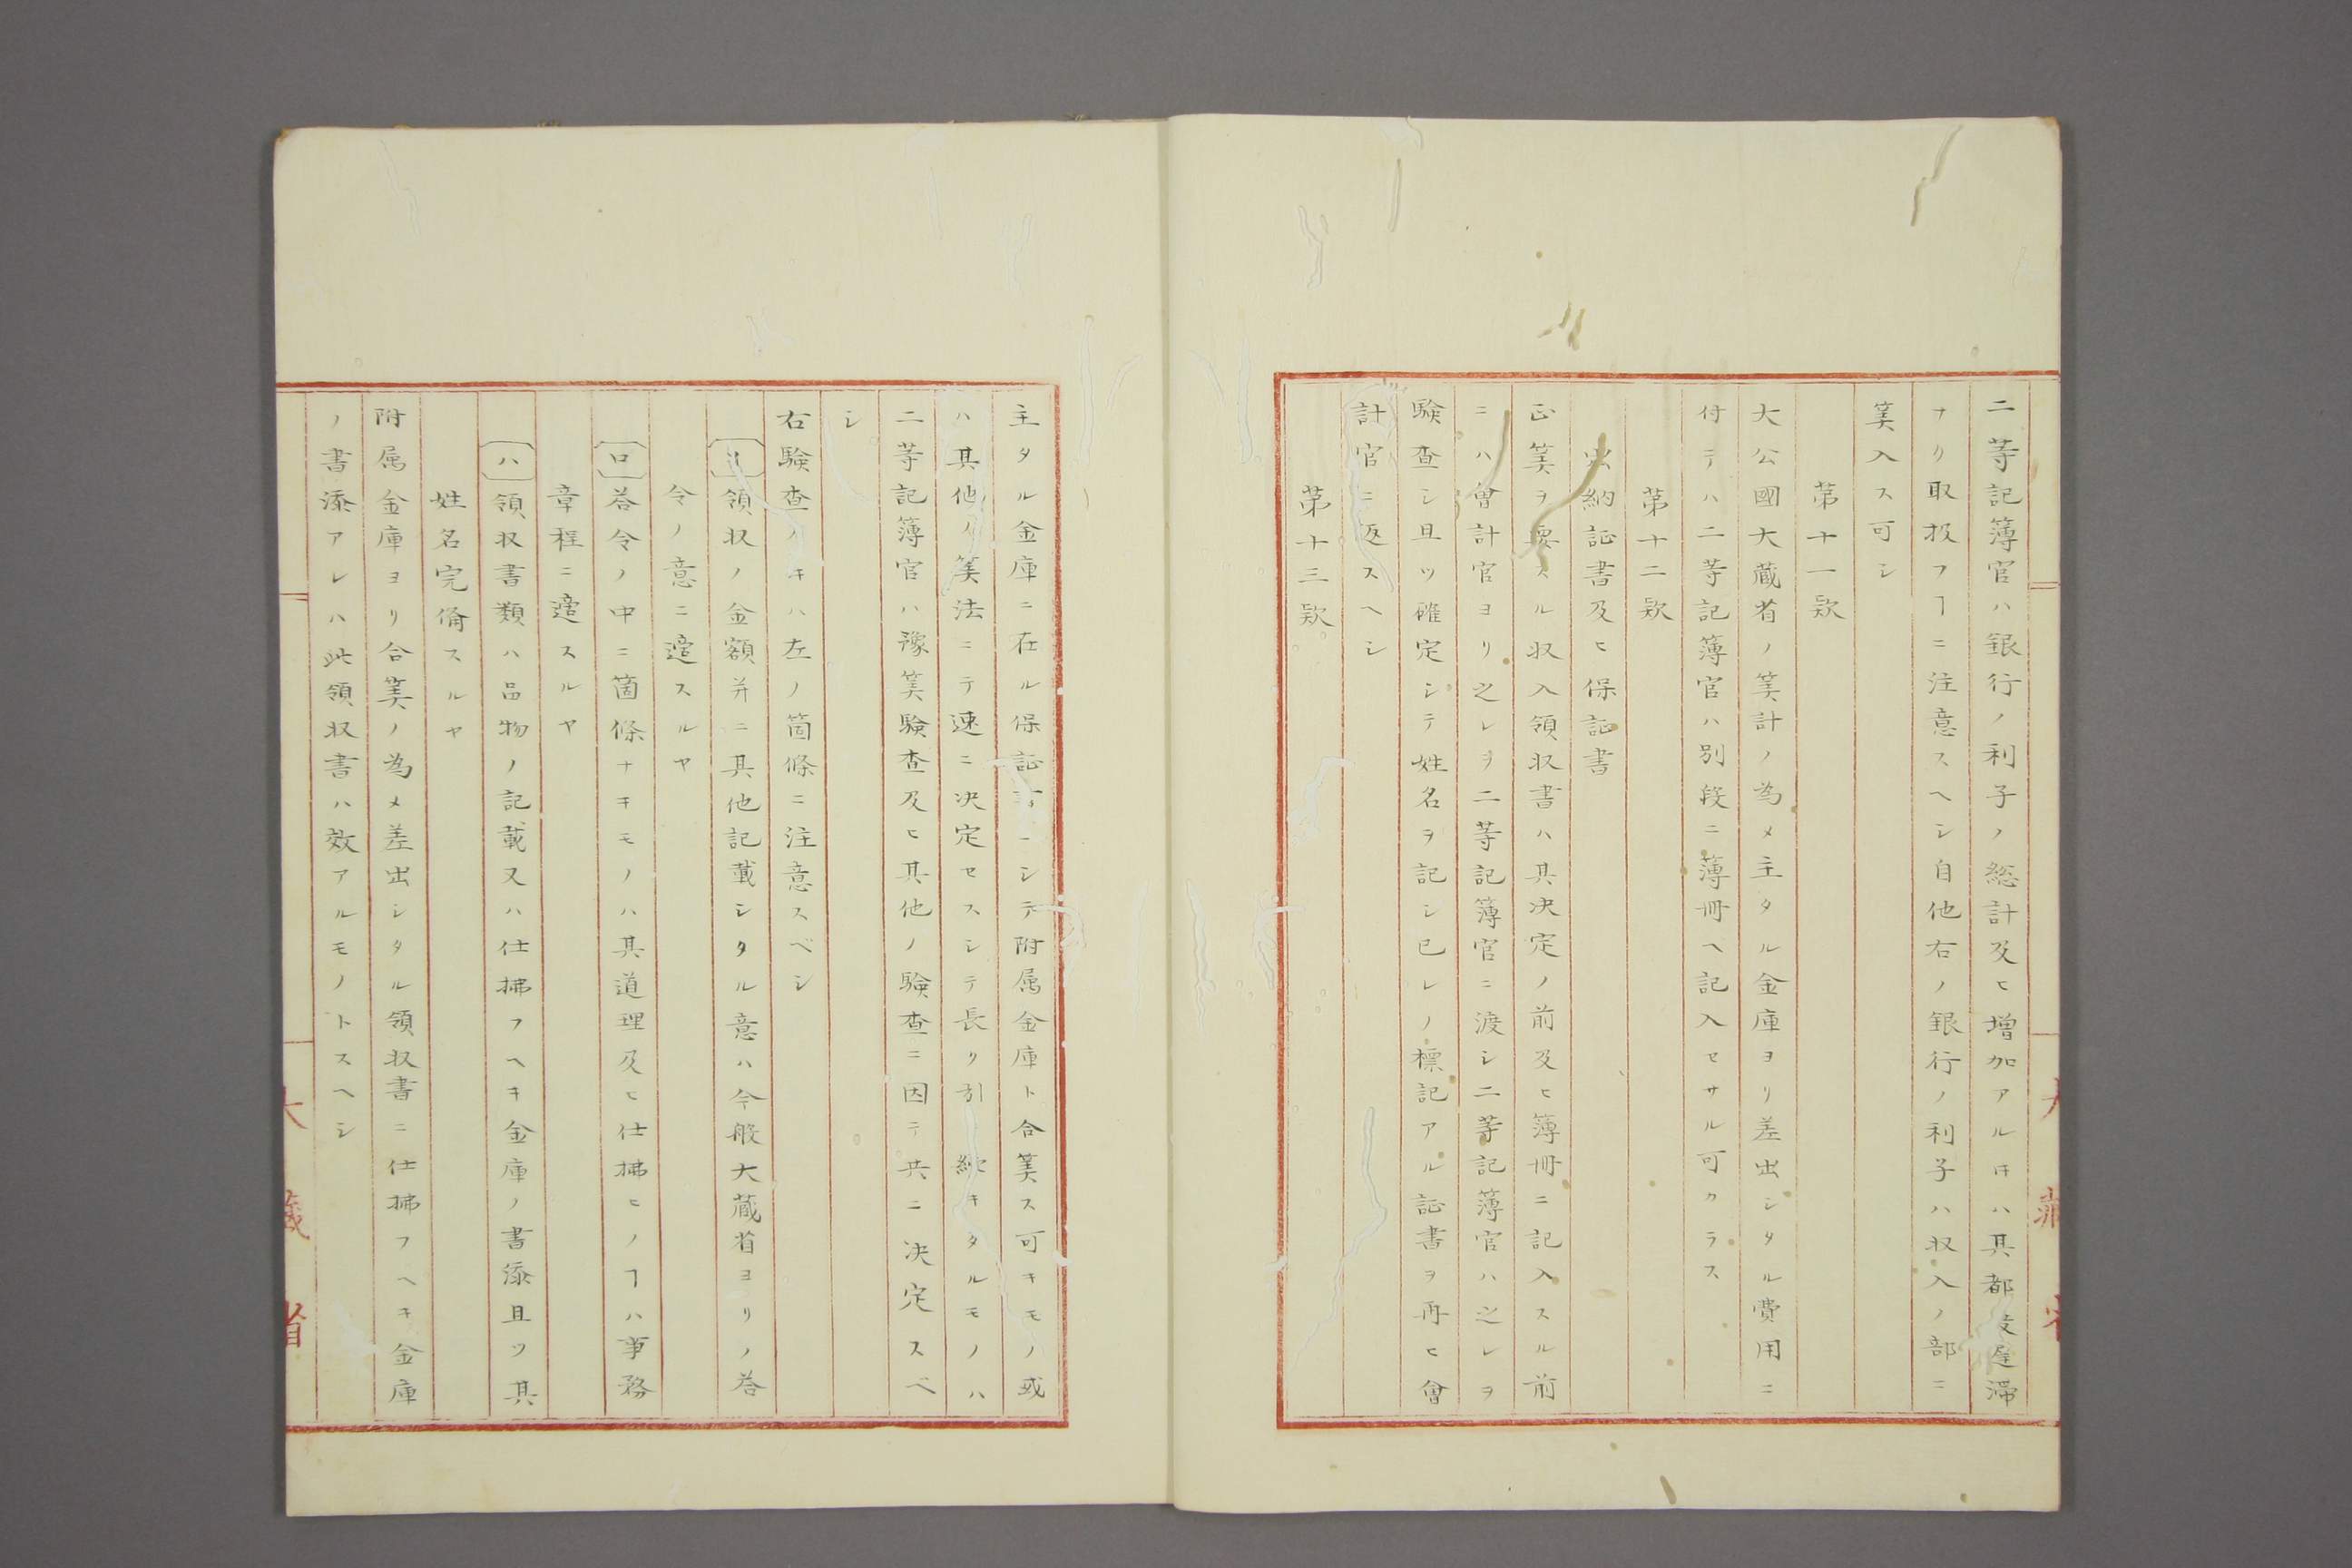 二等記簿官ハ銀行ノ利子ノ総計及ヒ増加アル日ハ其都度遅滞
ナク取扱フヿニ注意スヘシ自他右ノ銀行ノ利子ハ収入ノ部ニ
筭入ス可シ
第十一欵
大公國大蔵省ノ筭計ノ為メ主タル金庫ヨリ差出シタル費用ニ
付テハ二等記簿官ハ別段ニ薄冊ヘ記入セサル可カラス
第十二欵
出納証書及ヒ保証書
正筭ヲ要スル収入領収書ハ其决定ノ前及ヒ簿冊ニ記入スル前
ニハ會計官ヨリ之レヲ二等記簿官ニ渡シ二等記簿官ハ之レヲ
験査シ且ツ確定シテ姓名ヲ記シ已レノ標記アル証書ヲ再ヒ會
計官ニ返スヘシ
第十三欵
主タル金庫ニ在ル保証書ニシテ附属金庫ト合筭ス可キモノ或
ハ其他ノ筭法ニテ速ニ决定セスシテ長ク引続キタルモノハ
二等記簿官ハ豫筭験査及ヒ其他ノ験査ニ因テ共ニ决定スベ
シ
右験査ノキハ左ノ箇條ニ注意スベシ
イ 領収ノ金額并ニ其他記載シタル意ハ今般大蔵省ヨリノ荅
令ノ意ニ適スルヤ
ロ 荅令ノ中ニ箇條ナキモノハ其道理及ヒ仕拂ヒノヿハ事務
章程ニ適スルヤ
ハ 領収書類ハ品物ノ記載又ハ仕拂フヘキ金庫ノ書添且ツ其
姓名完俻スルヤ
附属金庫ヨリ合筭ノ為メ差出シタル領収書ニ仕拂フヘキ金庫
ノ書添アレハ此領収書ハ效アルモノトスヘシ
大蔵省